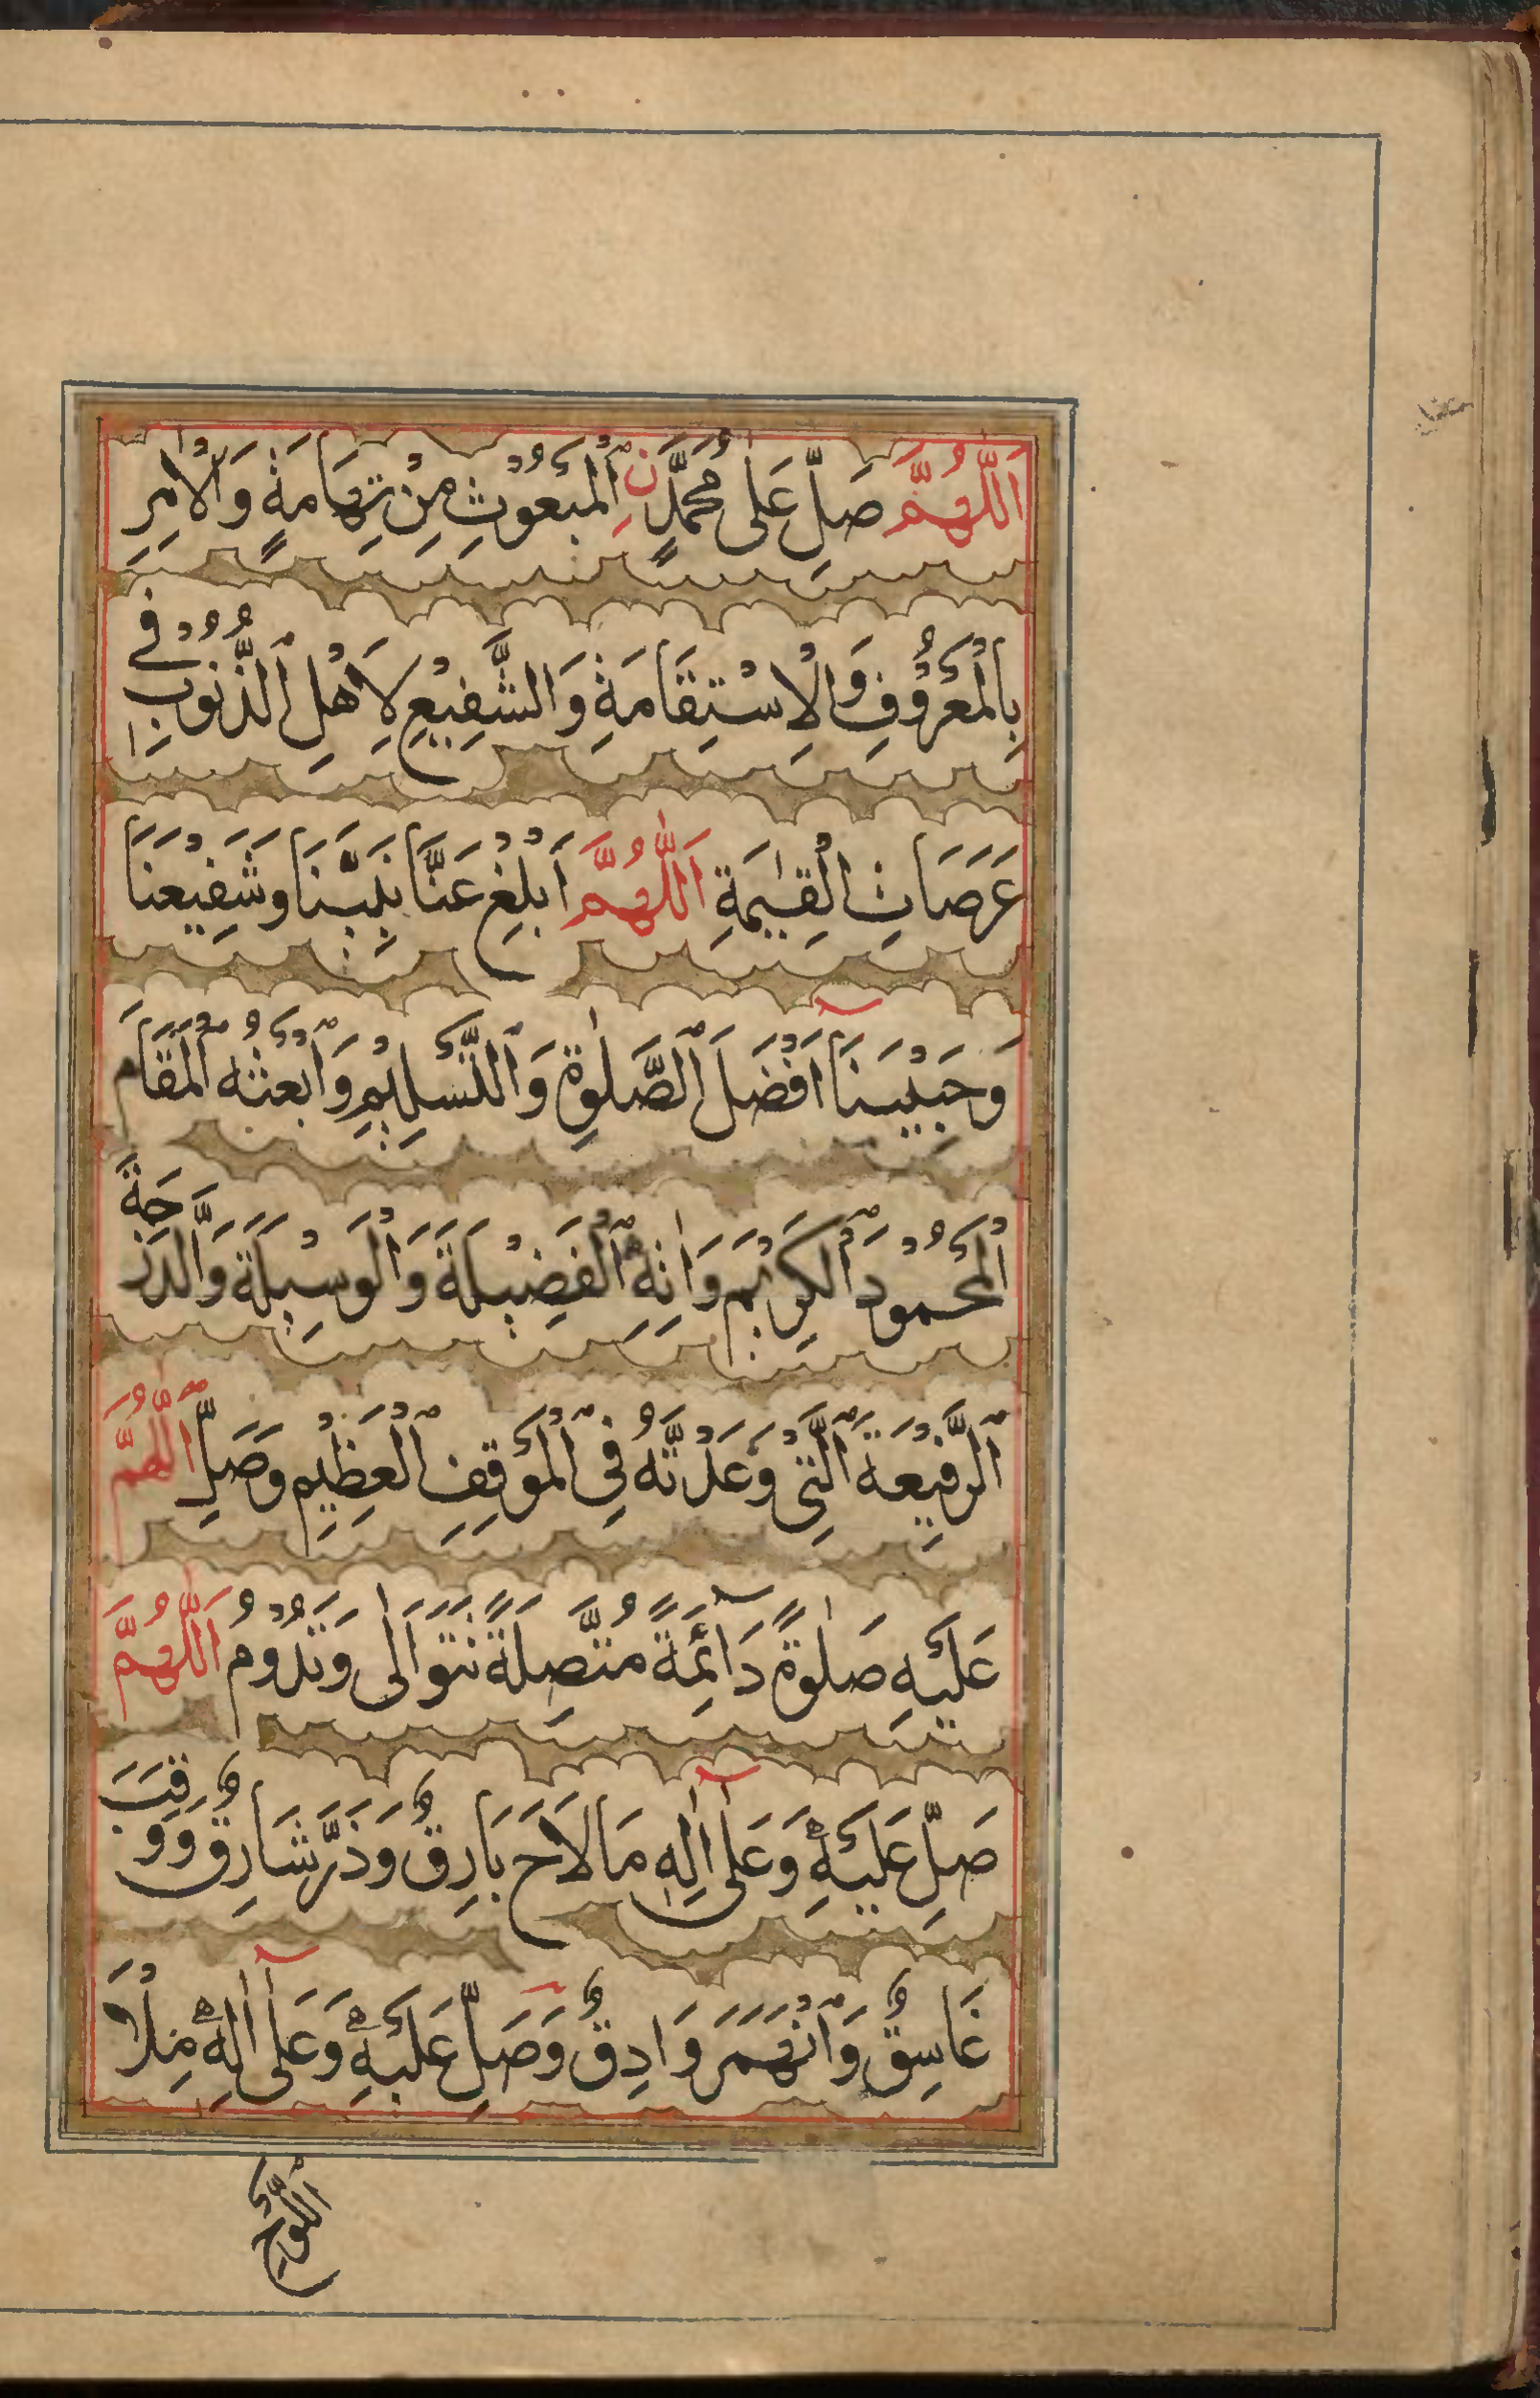 اَللّٰهُمَّ صَلِّ عَلٰى مُحَمَّدٍ نِ الْمَبْعُوْثِ مِنْ تِهَامَةٍ وَالْاٰمِرِ
بِالْمَعْرُوْفِ وَالْاِسْتِقَامَةِ وَالشَّفِيْعِ لِاَهْلِ الذُّنُوْبِ فِى
عَرَصَاتِ الْقِيٰمَةِ اَللّٰهُمَّ اَبْلِغْ عَنَّا نَبِيَّنَا وَشَفِيْعَنَا
وَحَبِيْبَنَا اَفْضَلَ الصَّلٰوةِ وَالتَّسْلِيْمِ وَابْعَثْهُ الْمَقَامَ
الْمَحْمُوْدَ الْكَرِيْمَ وَاٰتِهِ الْفَضِيْلَةَ وَالْوَسِيْلَةَ وَالدَّرَجَةَ
الرَّفِيْعَةَ الَّتِىْ وَعَدْتَّهُ فِى الْمَوْقِفِ الْعَظِيْمِ وَصَلِّ اللّٰهُمَّ
عَلَيْهِ صَلٰوةً دَآئِمَةً مُتَّصِلَةً تَتَوَالٰى وَتَدُوْمُ اَللّٰهُمَّ
صَلِّ عَلَيْهِ وَعَلٰى اٰلِهٖ مَا لَاحَ بَارِقٌ وَذَرَّ شَارِقٌ وَوَقَبَ
غَاسِقٌ وَانْهَمَرَ وَادِقٌ وَصَلِّ عَلَيْهِ وَعَلٰى اٰلِهٖ مِلْاَ
اللَّوْحِ